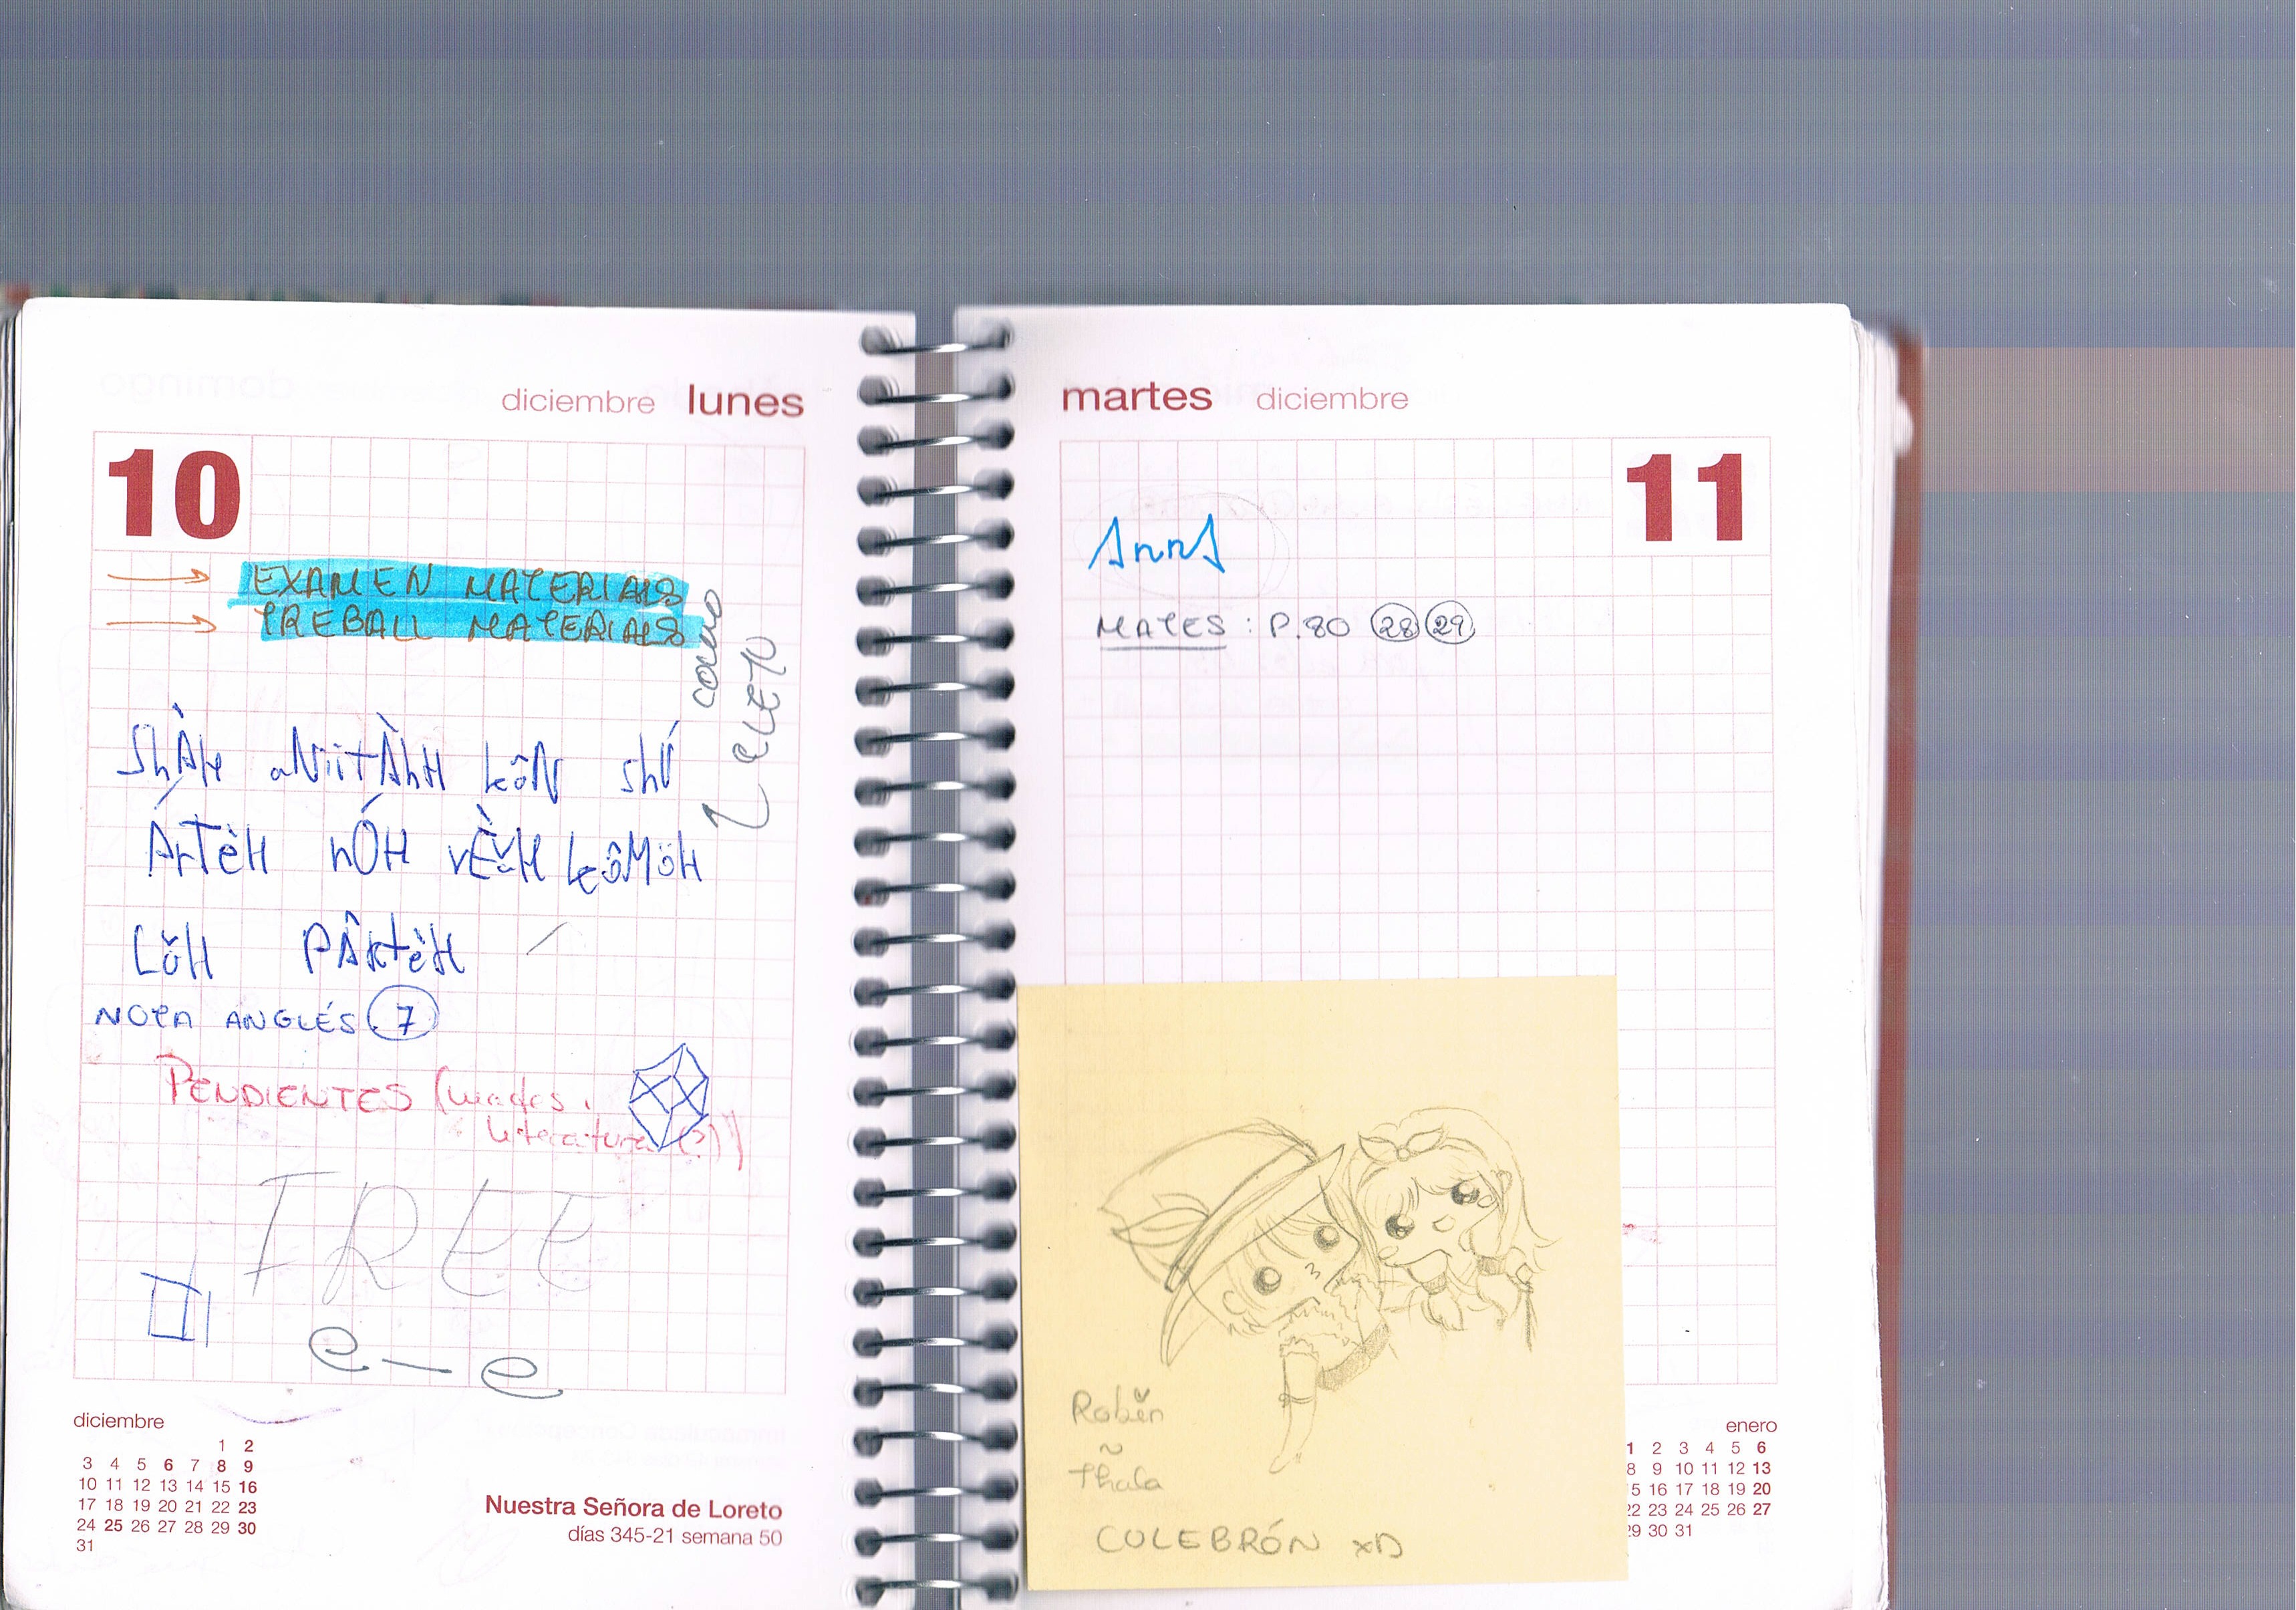 diciembre lunes
10
EXAMEN MATERIALS
TREBALL MATERIALS
ShÀH aNiitÀhH kôN shÚ
ÁrTèH nÓH vÈH kôMöH
LöH PÂrtèH
NOTA ANGLÉS 7
PENDIENTES (mates,
literatura (?))
FREE
e—e
diciembre
1 2
3 4 5 6 7 8 9
10 11 12 13 14 15 16
17 18 19 20 21 22 23
24 25 26 27 28 29 30
31
Nuestra Señora de Loreto
días 345-21 semana 50
martes diciembre
11
AnnA
MATES: P.80 28 29
Robin
~
Thala
CULEBRÓN xD
enero
1 2 3 4 5 6
8 9 10 11 12 13
15 16 17 18 19 20
22 23 24 25 26 27
29 30 31